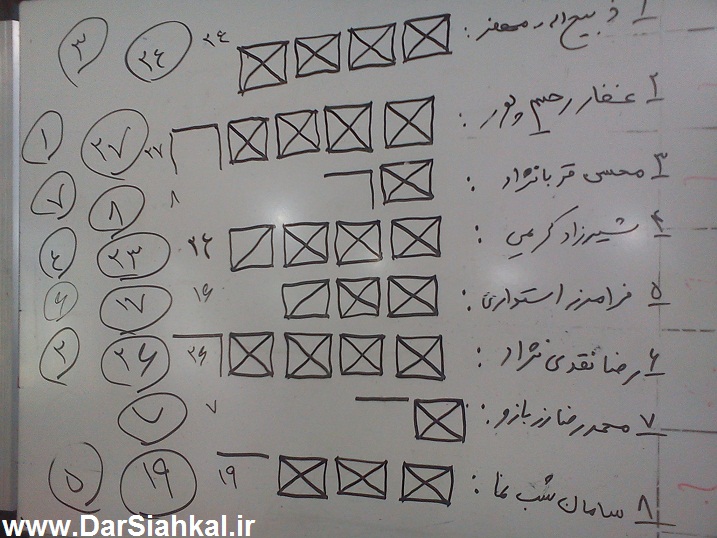 ۱ ذبیح اله معفر : ۲۴ ۲۴ ۳
۲ غفار رحیم پور : ۲۷ ۲۷ ۱
۳ محسن قربانژاد : ۸ ۸ ۷
۴ شیرزاد کریمی : ۲۳ ۴
۵ فرامرز استواری : ۱۶ ۱۷ ۶
۶ رضا نقدی نژاد : ۲۶ ۲۶ ۲
۷ محمدرضا زربازو : ۷ ۷
۸ سامان شب نما : ۱۹ ۱۹ ۵
www.DarSiahkal.ir